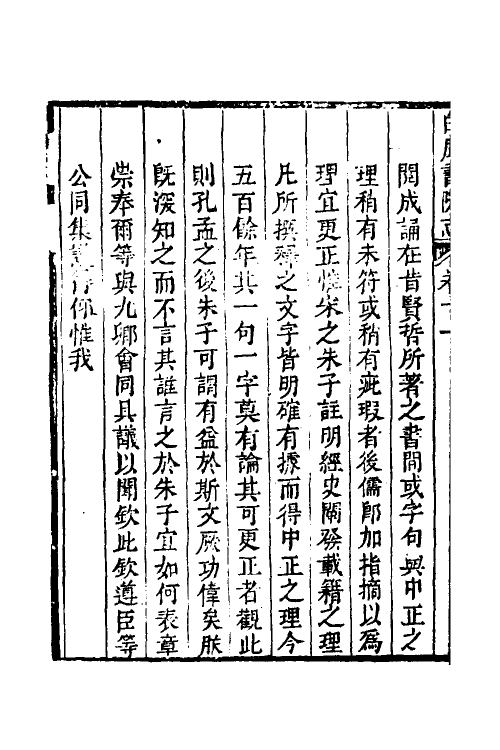 白鹿書院志 卷十一
閱成誦在昔賢哲所著之書間或字句與中正之
理稍有未符或稍有疵瑕者後儒卽加指摘以爲
理宜更正惟宋之朱子註明經史闡發載籍之理
凡所撰釋之文字皆明確有據而得中正之理今
五百餘年其一句一字莫有論其可更正者觀此
則孔孟之後朱子可謂有益於斯文厥功偉矣朕
旣深知之而不言其誰言之於朱子宜如何表章
崇奉爾等與九卿會同具議以聞欽此欽遵臣等
公同集議得仰惟我